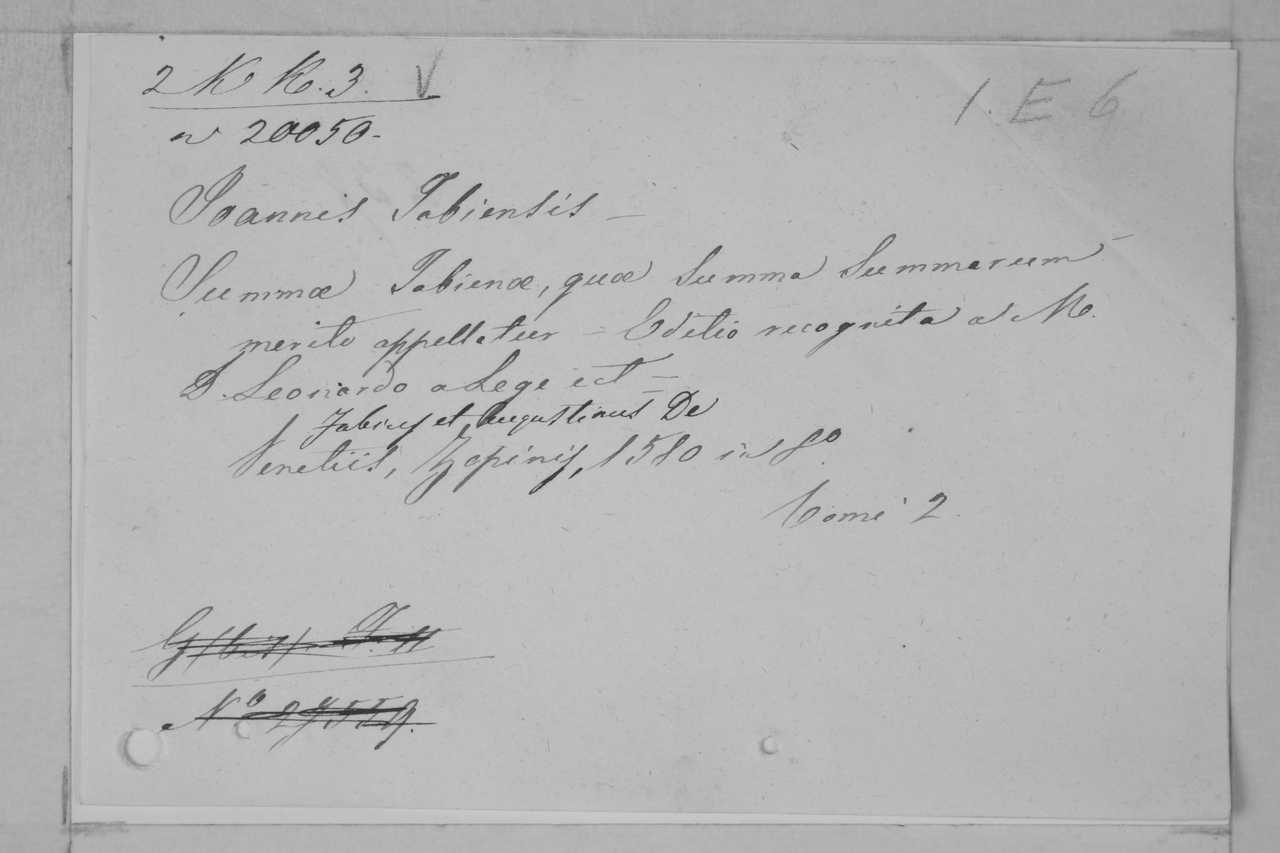 2 K K. 3. V
1. E 6
n 20050-
Joannis Tabiensis —
Summæ Tabienæ, quæ Summa Summarum
merito appellatur — Editio recognita a M.
D. Leonardo a Lege ect —
Fabius et Augustinus De
Venetiis, Zopinis, 1580 in 8º
Tomi 2
Nº 27559.